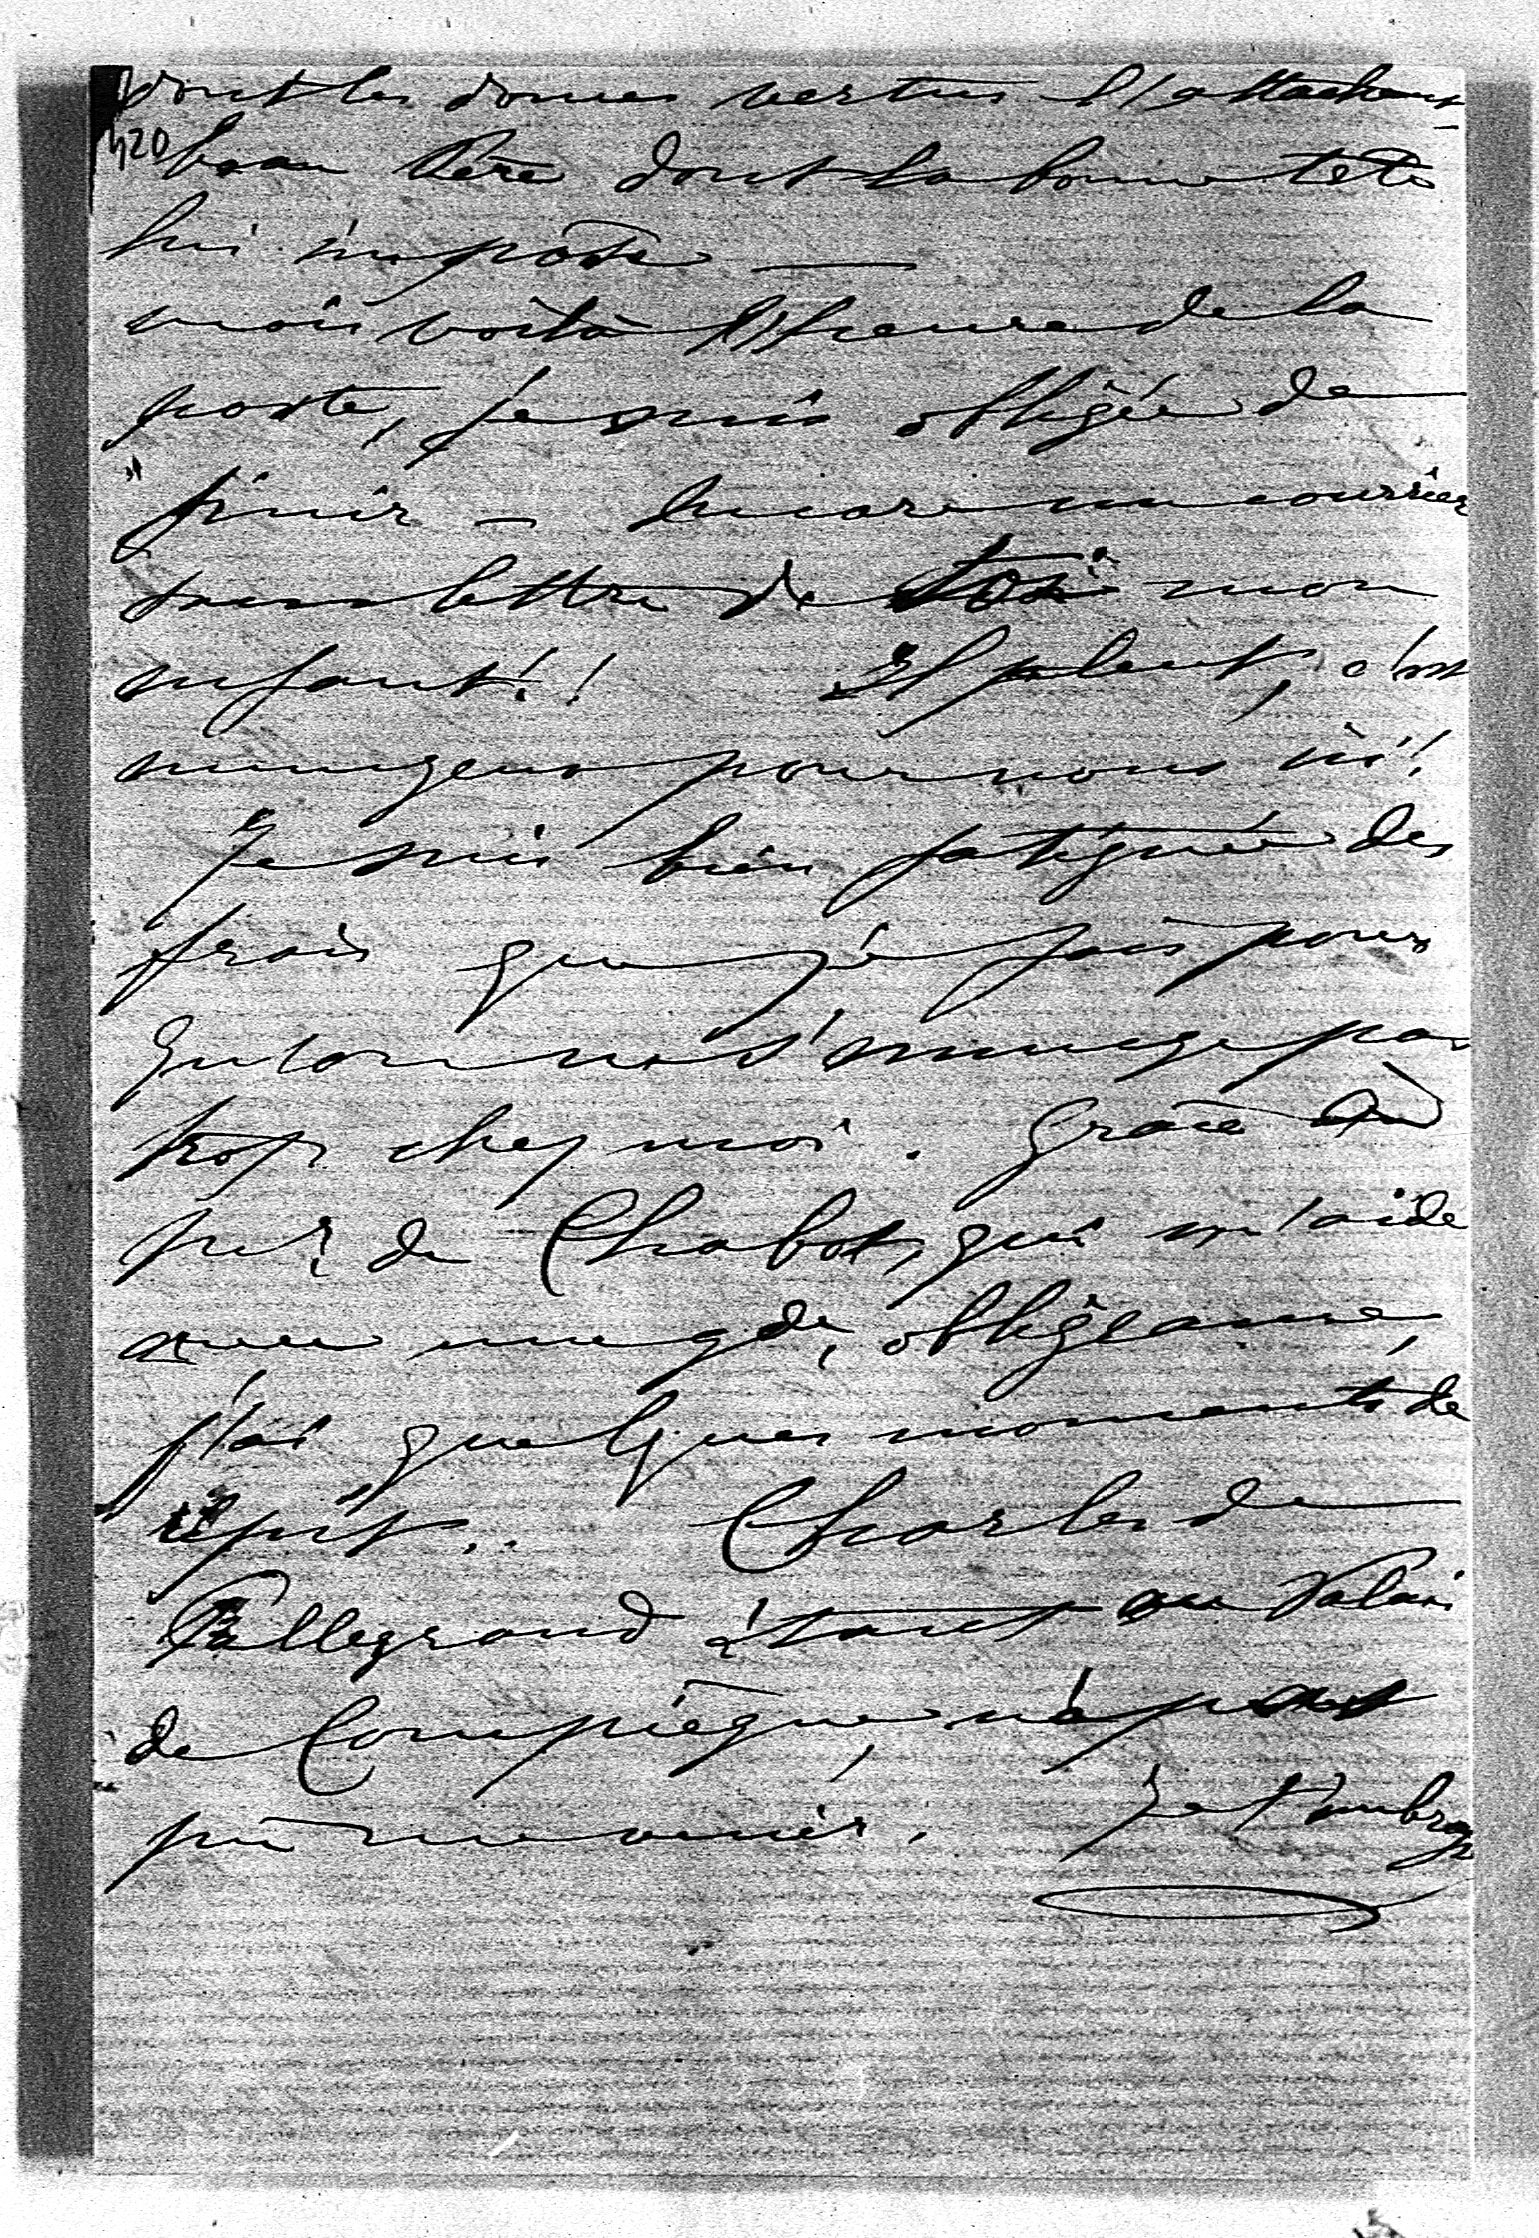 dont les douces vertus l'attachent
420 beau Père dont la bonne tête
lui impose —
mais voilà l'heure de la
poste, je suis obligée de
finir — Encore un courrier
sans lettre de toi mon
enfant!! Il pleut, c'est
ennuyeux pour nous ici!
Je suis bien fatiguée des
frais que je fais pour
qu'on ne s'ennuye pas
trop chez moi. Grâce à
de Chabot, qui m'aide
avec une gde obligeance,
j'ai quelques moments de
répit.. Charles de
étant au Palais
de Compiègne, n'a pas
pu me venir. Je t'embrasse